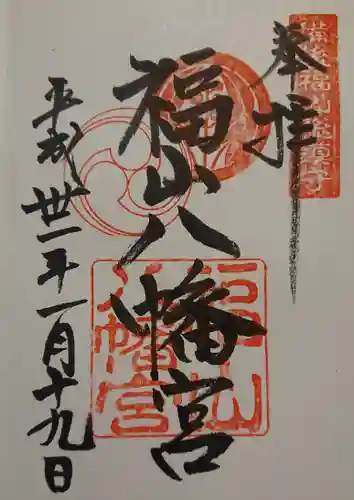 奉拝
備後福山総鎮守
福山八幡宮
福山
八幡宮
平成卅一年一月十九日